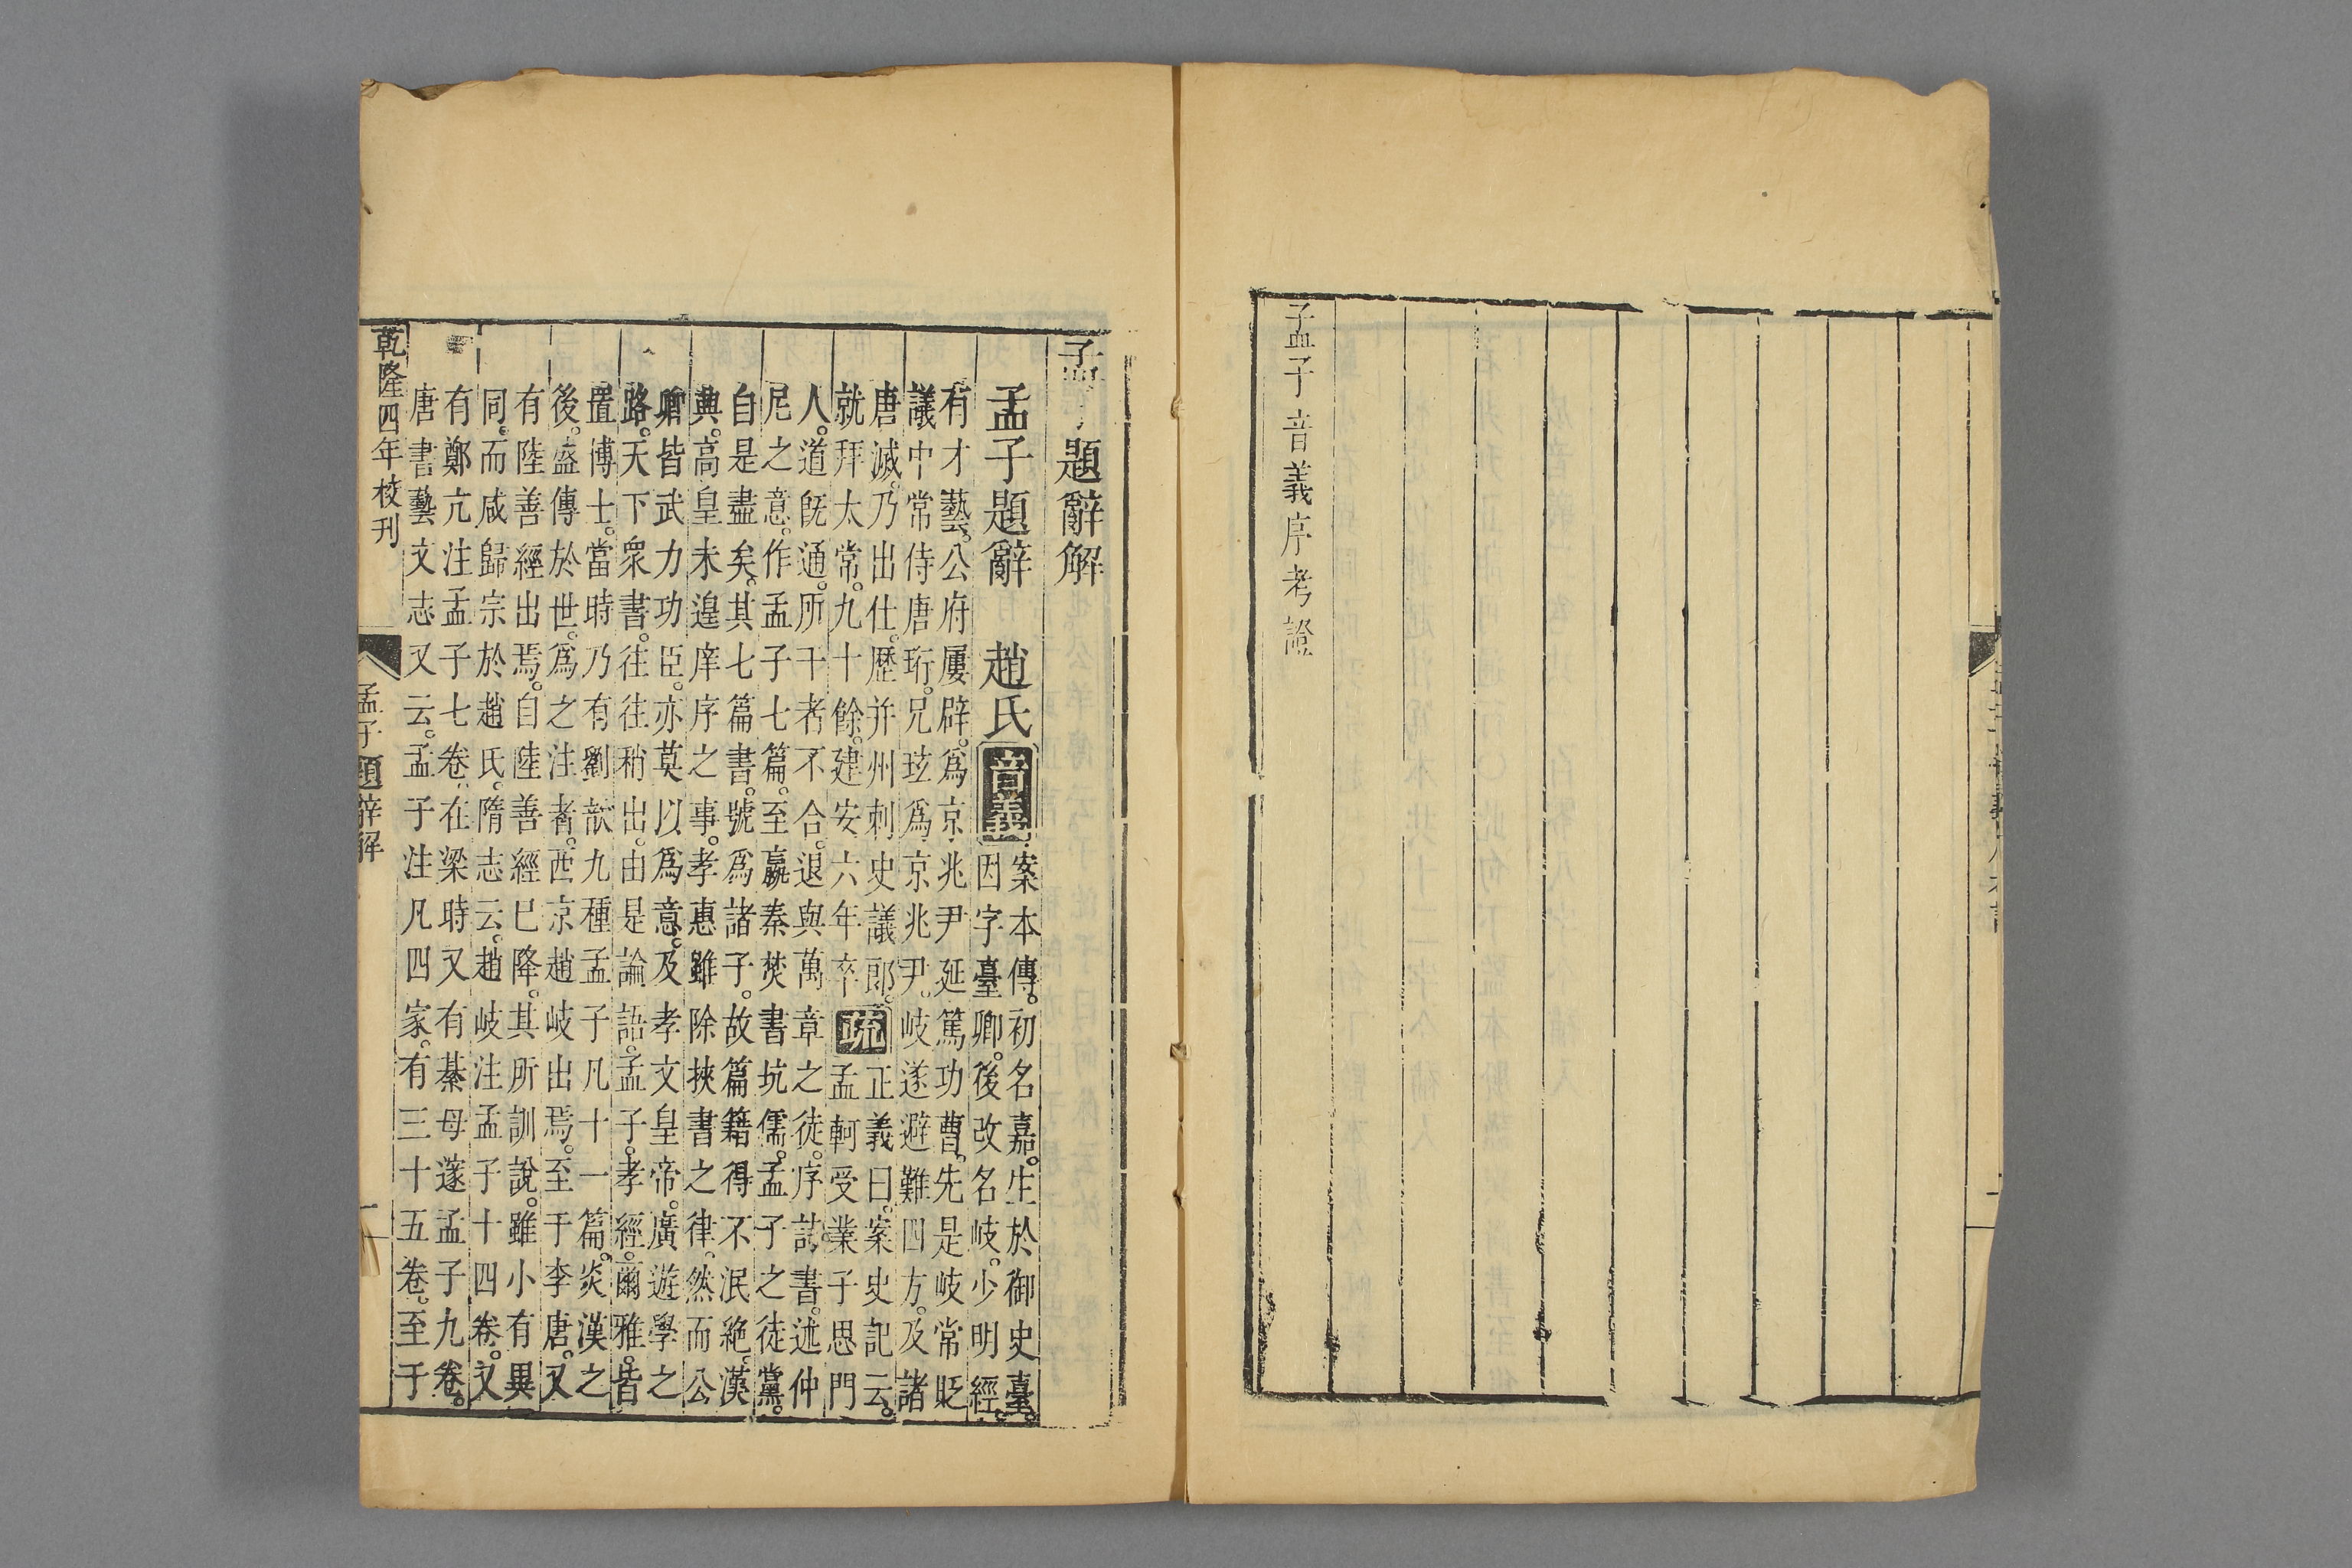 孟子音義序考證
孟子題辭解
孟子題辭　趙氏 音義 案本傳。初名嘉。生於御史臺。
因字臺卿。後改名岐。少明經。
有才藝。公府屢辟。爲京兆尹延篤功曹。先是岐常貶
議中常侍唐珩。兄玹爲京兆尹。岐遂避難四方。及諸
唐滅。乃出仕。歷并州刺史議郎。
就拜太常。九十餘。建安六年卒 疏 正義曰。案史記云。
孟軻受業子思門
人。道旣通。所干者不合。退與萬章之徒。序詩書。述仲
尼之意。作孟子七篇。至嬴秦焚書坑儒。孟子之徒黨。
自是盡矣。其七篇書。號爲諸子。故篇籍得不泯絶。漢
典。高皇未遑庠序之事。孝惠雖除挾書之律。然而公
卿皆武力功臣。亦莫以爲意。及孝文皇帝。廣遊學之
路。天下衆書。往往稍出。由是論語。孟子。孝經。爾雅。皆
置博士。當時乃有劉歆九種孟子凡十一篇。炎漢之
後。盛傳於世。爲之注者。西京趙岐出焉。至于李唐。又
有陸善經出焉。自陸善經已降。其所訓說。雖小有異
同。而咸歸宗於趙氏。隋志云。趙岐注孟子十四卷。又
有鄭亢注孟子七卷。在梁時又有綦母邃孟子九卷。
唐書藝文志又云。孟子注凡四家。有三十五卷。至于
乾隆四年校刊
孟子題辭解
一